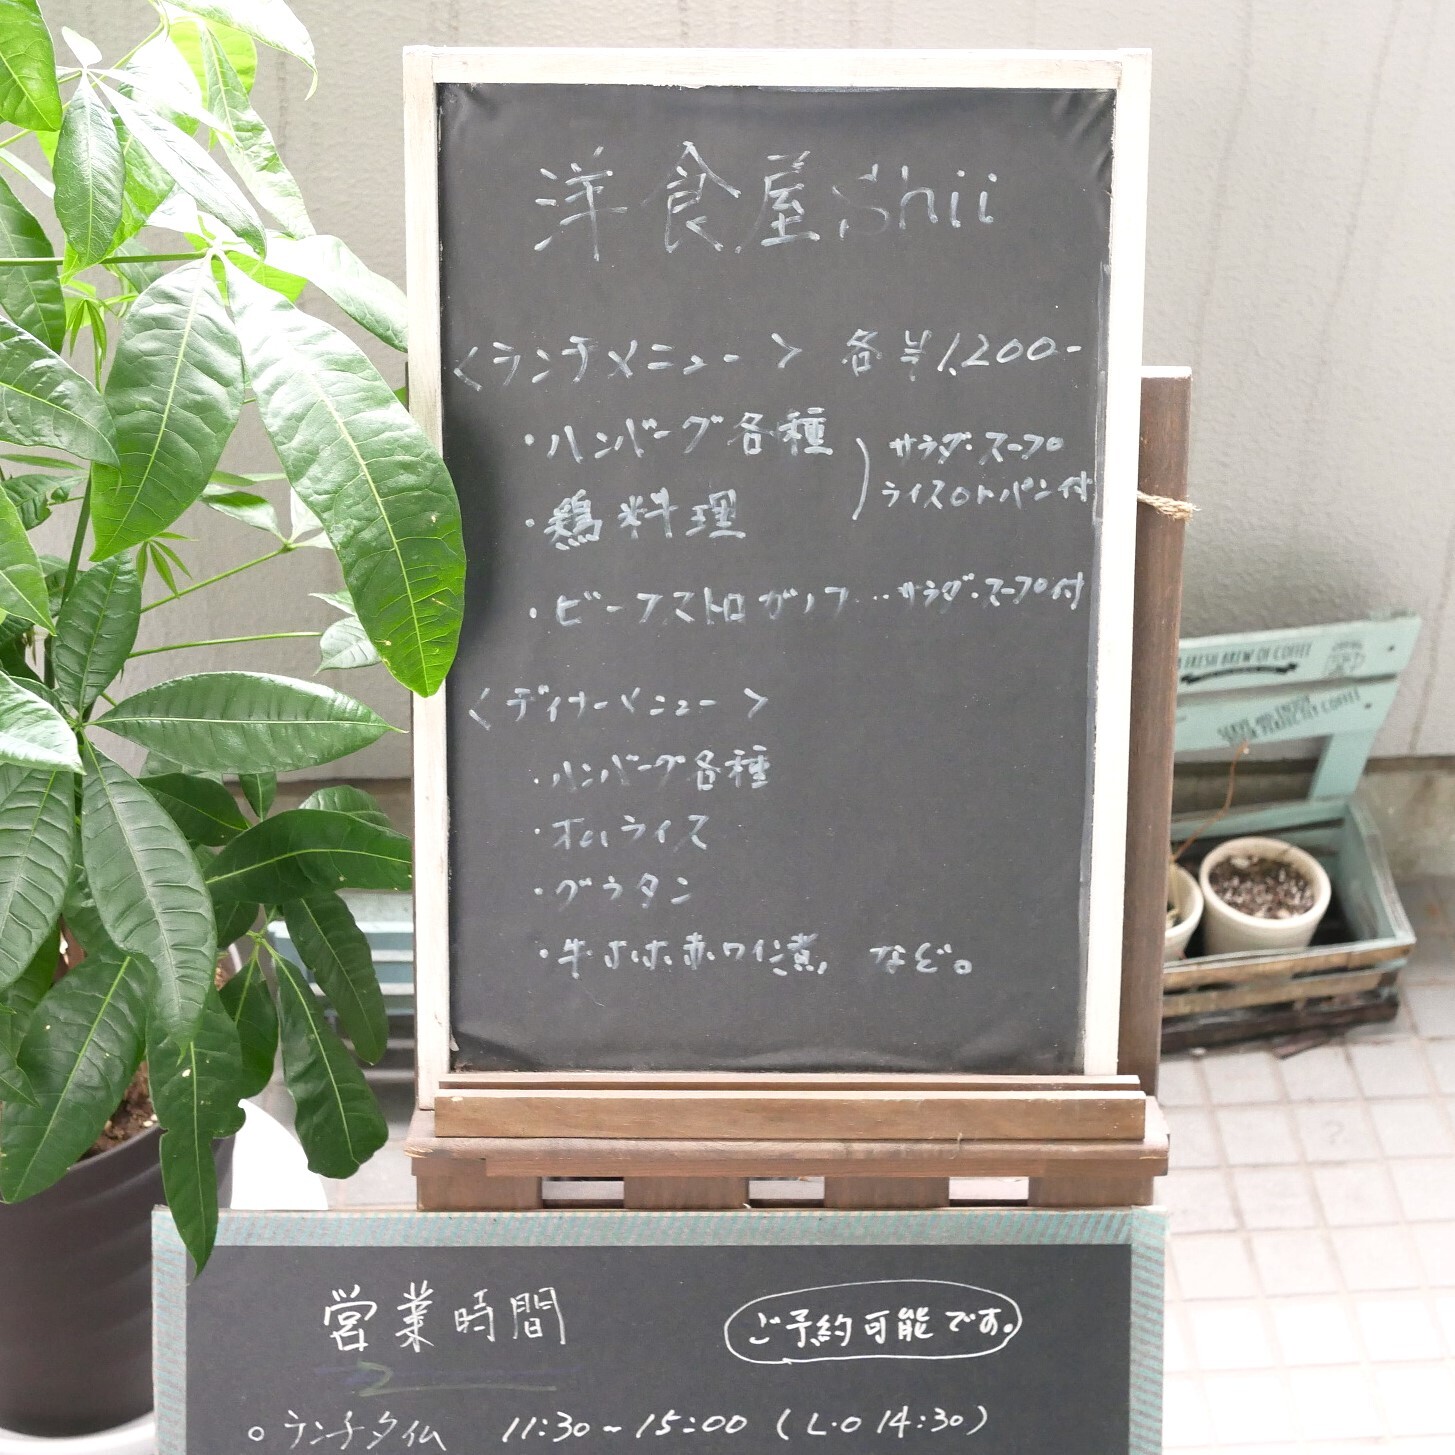 洋食屋Shii
<ランチメニュー> 各¥1,200-
・ハンバーグ各種
サラダ・スープ
ライスorパン付
・鶏料理
・ビーフストロガノフ…サラダ・スープ付
<ディナーメニュー>
・ハンバーグ各種
・オムライス
・グラタン
・牛ホホ赤ワイン煮 など。
FRESH BREW OF COFFEE
SERVE AND ENJOY
YOUR PERFECTLY COFFEE
営業時間
ご予約可能です。
○ランチタイム 11:30~15:00 (L.O 14:30)